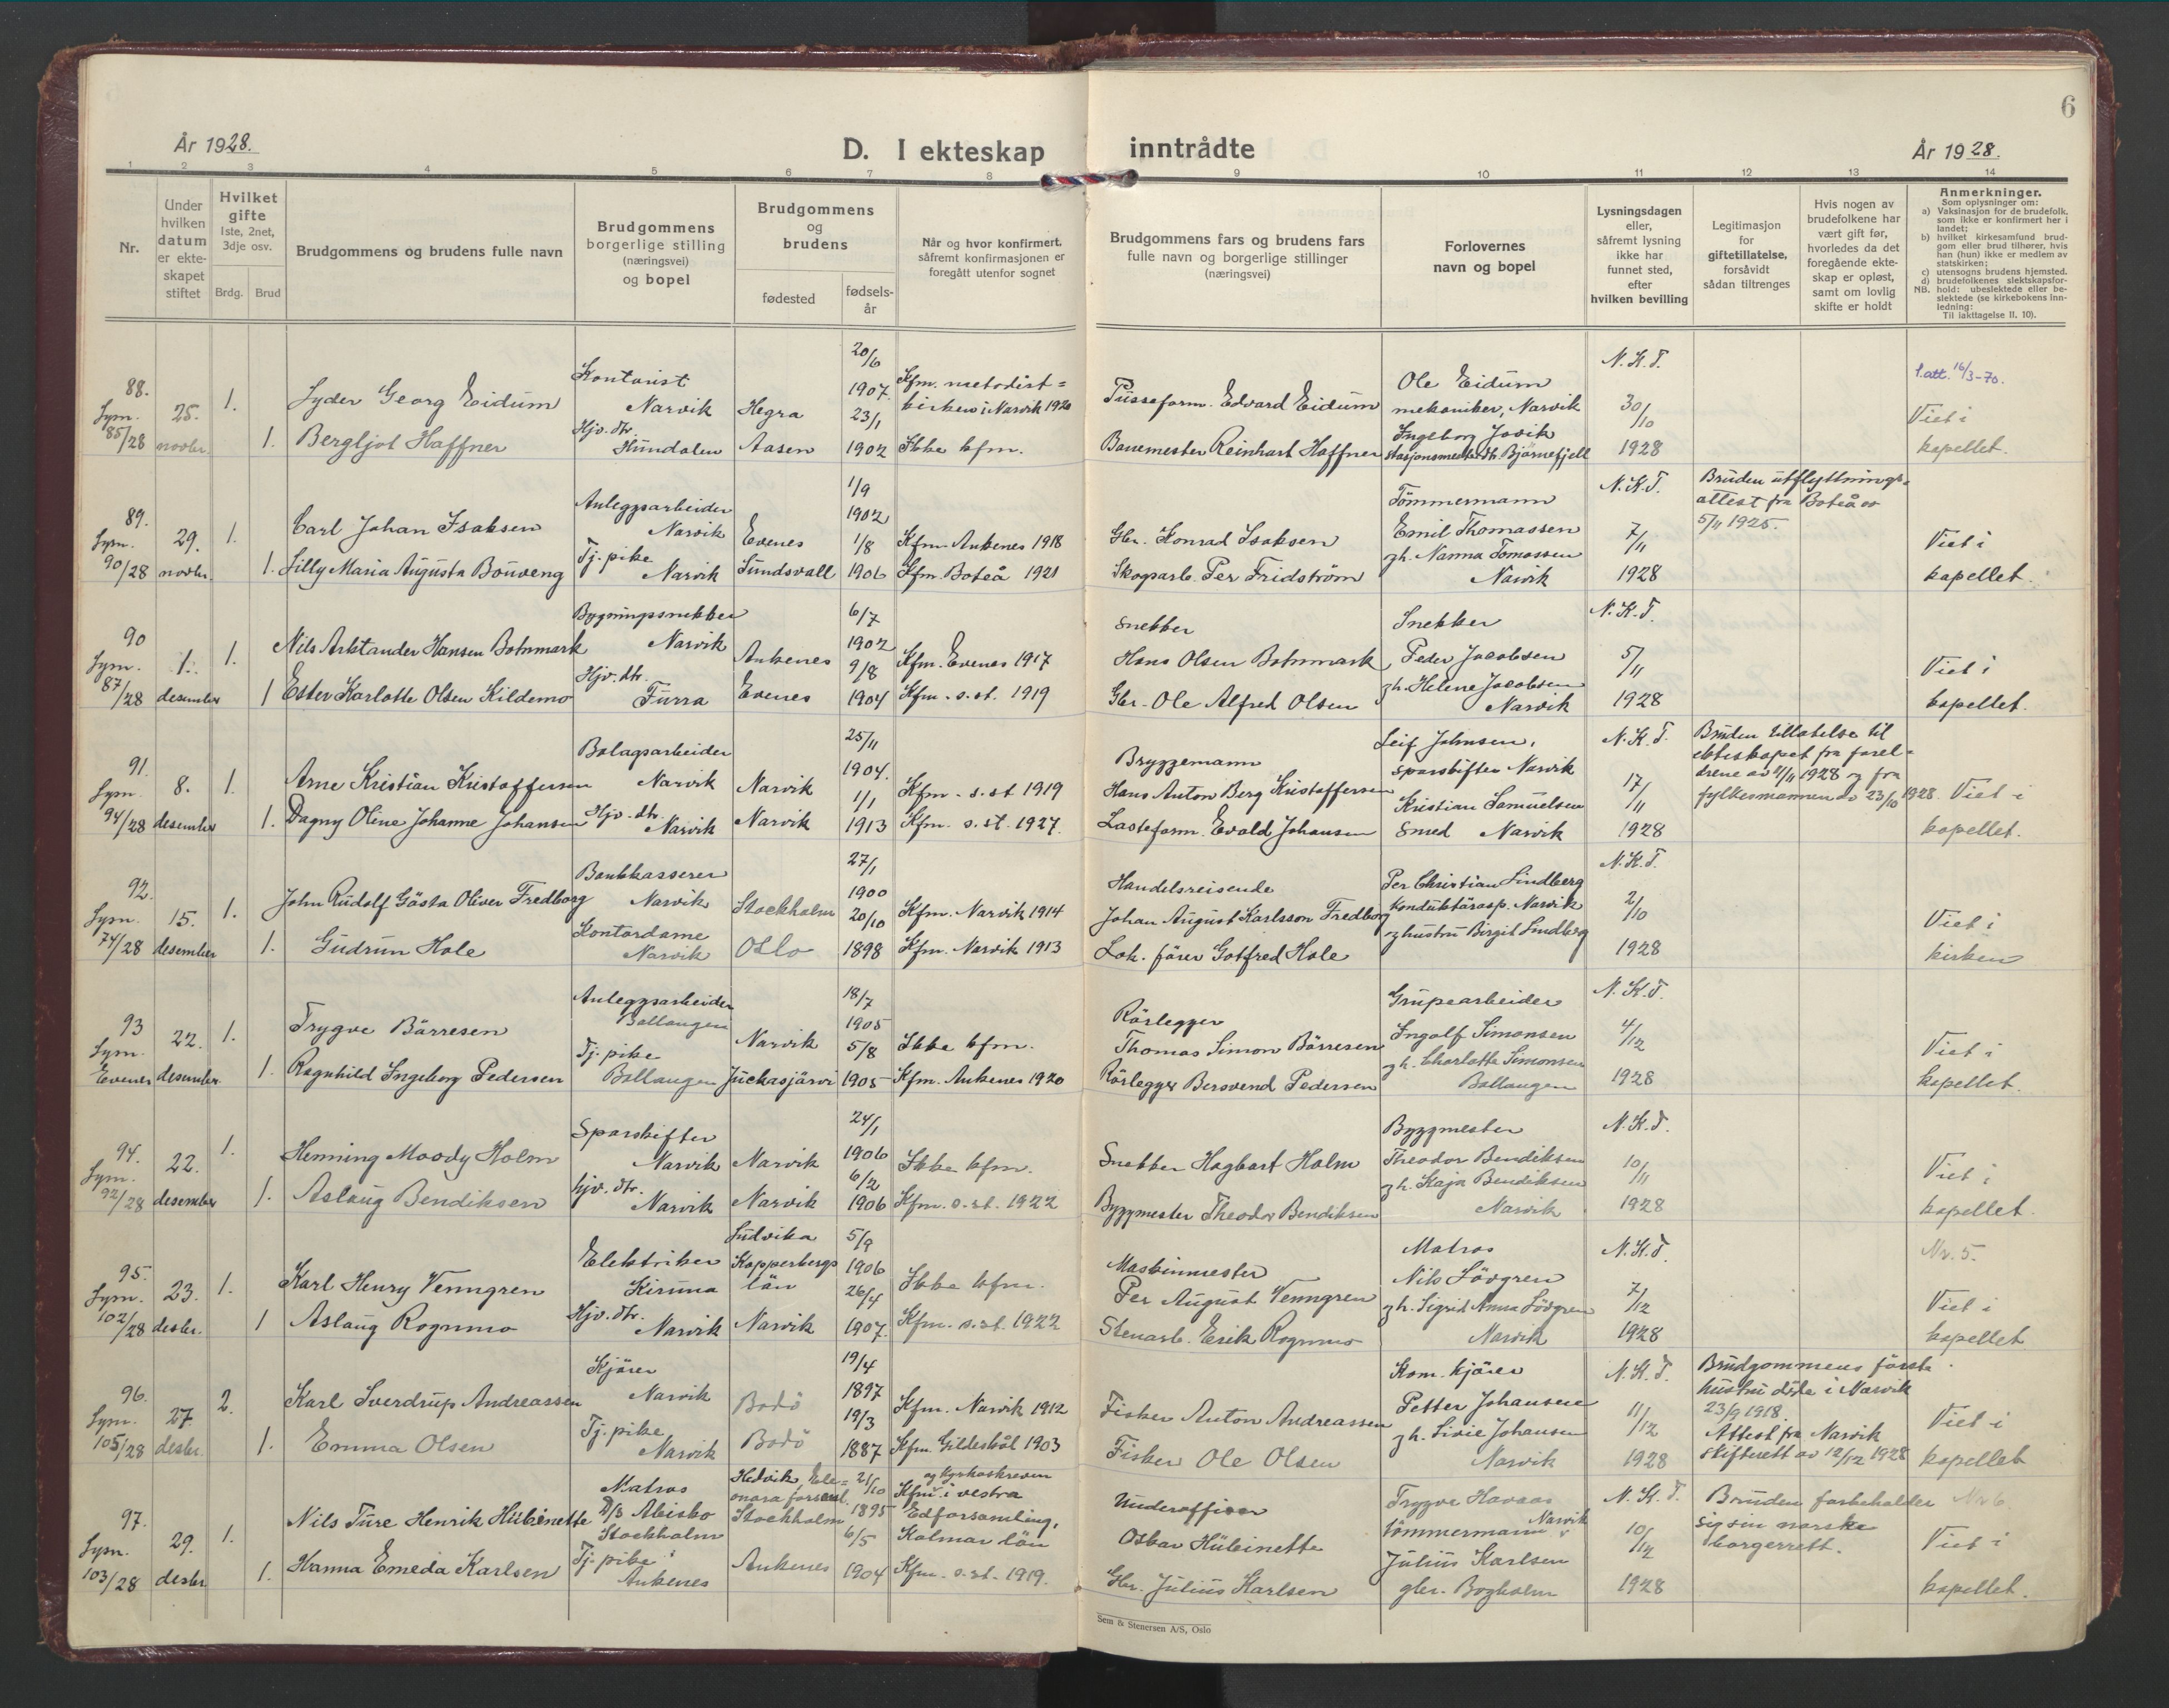 6
År 1928.
D. I ekteskap inntrådte
År 1928.
1 2 3 4 5 6 7 8 9 10 11 12 13 14
Nr.
Under hvilken datum er ekteskapet stiftet
Hvilket gifte
1ste, 2net, 3dje osv.
Brdg. Brud
Brudgommens og brudens fulle navn
Brudgommens borgerlige stilling (næringsvei) og bopel
Brudgommens og brudens
fødested
fødselsår
Når og hvor konfirmert, såfremt konfirmasjonen er foregått utenfor sognet
Brudgommens fars og brudens fars fulle navn og borgerlige stillinger (næringsvei)
Forlovernes navn og bopel
Lysningsdagen eller, såfremt lysning ikke har funnet sted, efter hvilken bevilling
Legitimasjon for giftetillatelse, forsåvidt sådan tiltrenges
Hvis nogen av brudefolkene har vært gift før, hvorledes da det foregående ekteskap er opløst, samt om lovlig skifte er holdt
Anmerkninger.
Som oplysninger om:
a) Vaksinasjon for de brudefolk, som ikke er konfirmert her i landet;
b) hvilket kirkesamfund brudgom eller brud tilhører, hvis han (hun) ikke er medlem av statskirken;
c) utensogns brudens hjemsted.
d) brudefolkenes slektskapsforhold: ubeslektede eller beslektede (se kirkebokens Innledning:
NB. Til iakttagelse II. 10).
88. Lysn. 85/28
25. novbr.
1. 1.
Lyder Georg Eidum
Bergljot Haffner
Kontorist Narvik
Hjv. dtr. Hundalen
Hegra
Aasen
20/6 1907.
23/1 1902
Kfm. metodistkirken i Narvik 1920
Ikke kfm.
Pusseform. Edvard Eidum
Banemester Reinhart Haffner
Ole Eidum mekaniker, Narvik
Ingeborg Jovik stasjonsmesterdtr. Bjørnefjell
N. K. T. 30/10 1928
l.att. 16/3-70.
Viet i kapellet.
89. Lysn. 90/28
29. novbr.
1. 1.
Carl Johan Isaksen
Lilly Maria Augusta Bouveng
Anleggsarbeider Narvik
Tj. pike Narvik
Evenes
Sundsvall
1/9 1902
1/8 1906
Kfm. Ankenes 1918
Kfm. Boteå 1921
Gbr. Konrad Isaksen
Skogsarb. Per Fridström
Tömmermann Emil Thomassen
og h. Nanna Tomassen Narvik
N. K. T. 7/11 1928
Bruden utflyttningsattest fra Boteå av 5/11 1925.
Viet i kapellet.
90 Lysn. 87/28
1. desember
1. 1
Nils Arktander Hansen Botnmark
Ester Karlotte Olsen Kildemo
Bygningssnekker Narvik
Hjv. dtr. Furra
Ankenes
Evenes
6/7 1902
9/8 1904
Kfm. Evenes 1917
Kfm. s. st. 1919
Snekker Hans Olsen Botnmark
Gbr. Ole Alfred Olsen
Snekker Peder Jacobsen
og h. Helene Jacobsen Narvik
N. K. T. 5/11 1928
Viet i kapellet.
91. Lysn. 94/28
8. desember
1. 1.
Arne Kristian Kristoffersen
Dagny Oline Johanne Johansen
Bolagsarbeider Narvik
Hjv. dtr. Narvik
Narvik
Narvik
25/11 1904.
1/1 1913
Kfm. s. st. 1919
Kfm. s. st. 1927.
Bryggemann Hans Anton Berg Kristoffersen
Lasteform. Evald Johansen
Leif Johnsen, sporskifter Narvik
Kristian Samuelsen smed Narvik
N. K. T. 17/11 1928
Bruden tillatelse til ekteskapet fra foreldrene av 2/11 1928 og fra fylkesmannen av 23/10 1928.
Viet i kapellet.
92. Lysn. 74/28
15. desember
1. 1.
John Rudolf Gösta Oliver Fredborg
Gudrun Hole
Bankkasserer Narvik
Kontordame Narvik
Stockholm
Oslo
27/1 1900
20/10 1898
Kfm. Narvik 1914
Kfm. Narvik 1913
Handelsreisende Johan August Karlsson Fredborg
Lok. förer Gotfred Hole
Per Christian Lindberg konduktörasp. Narvik
og hustru Birgit Lindberg
N. K. T. 2/10 1928
Viet i kirken
93 Lysn. Evenes
22. desember
1. 1.
Trygve Börresen
Ragnhild Ingeborg Pedersen
Anleggsarbeider Ballangen
Tj. pike Ballangen
Narvik
Juckasjärvi
18/7 1905
5/8 1905
Ikke kfm.
Kfm. Ankenes 1920
Rörlegger Thomas Simon Börresen
Rörlegger Bersvend Pedersen
Grupearbeider Ingolf Simonsen
og h. Charlotte Simonsen Ballangen
N. K. T. 4/12 1928
Viet i kapellet.
94. Lysn. 92/28
22. desember
1. 1.
Henning Moody Holm
Aslaug Bendiksen
Sporskifter Narvik
hjv. dtr. Narvik
Narvik
Narvik
24/1 1906
6/2 1906
Ikke kfm.
Kfm. s. st. 1922
Snekker Hagbart Holm
Byggmester Theodor Bendiksen
Byggmester Theodor Bendiksen
og h. Kaja Bendiksen Narvik
N. K. T. 10/11 1928
Viet i kapellet.
95. Lysn. 102/28
23. desbr.
1. 1
Karl Henry Venngren
Aslaug Rognmo
Elektriker Kiruna
Hjv. dtr. Narvik
Ludvika Kopperbergs län
Narvik
5/9 1906
26/4 1907.
Ikke kfm.
Kfm. s. st. 1922
Maskinmester Per August Venngren
Stenarb. Erik Rognmo
Matros Nils Lövgren
og h. Sigrid Anna Lövgren Narvik
N. K. T. 7/12 1928
Nr. 5.
Viet i kapellet
96. Lysn. 105/28
27. desbr.
2. 1.
Karl Sverdrup Andreassen
Emma Olsen
Kjörer Narvik
Tj. pike Narvik
Bodö
Bodö
19/4 1897
19/3 1887
Kfm. Narvik 1912
Kfm. Gildeskål 1903
Fisker Anton Andreassen
Fisker Ole Olsen
Kom. kjörer Petter Johansen
og h. Livie Johansen Narvik
N. K. T. 11/12 1928
Brudgommens förste hustru döde i Narvik 23/9 1918.
Attest fra Narvik skifterett av 12/12 1928
Viet i kapellet
97. Lysn. 103/28
29. desbr
1. 1.
Nils Ture Henrik Hübinette
Hanna Emeda Karlsen
Matros D/S Abisko Stockholm
Tj. pike Ankenes
Hedvik Eleonora forsaml. Stockholm
Ankenes
21/10 1895
6/5 1904
Kfm. i vestra Edforsamling, Kalmar län
Kfm. s. st. 1919.
Underofficer Oskar Hübinette
Gbr. Julius Karlsen
Trygve Havaas tömmermann Narvik
Julius Karlsen gbr. Bogholm
N. K. T. 10/12 1928
Bruden forbeholder sig sin norske borgerrett.
Nr 6.
Viet i kapellet.
Sem & Stenersen A/S, Oslo